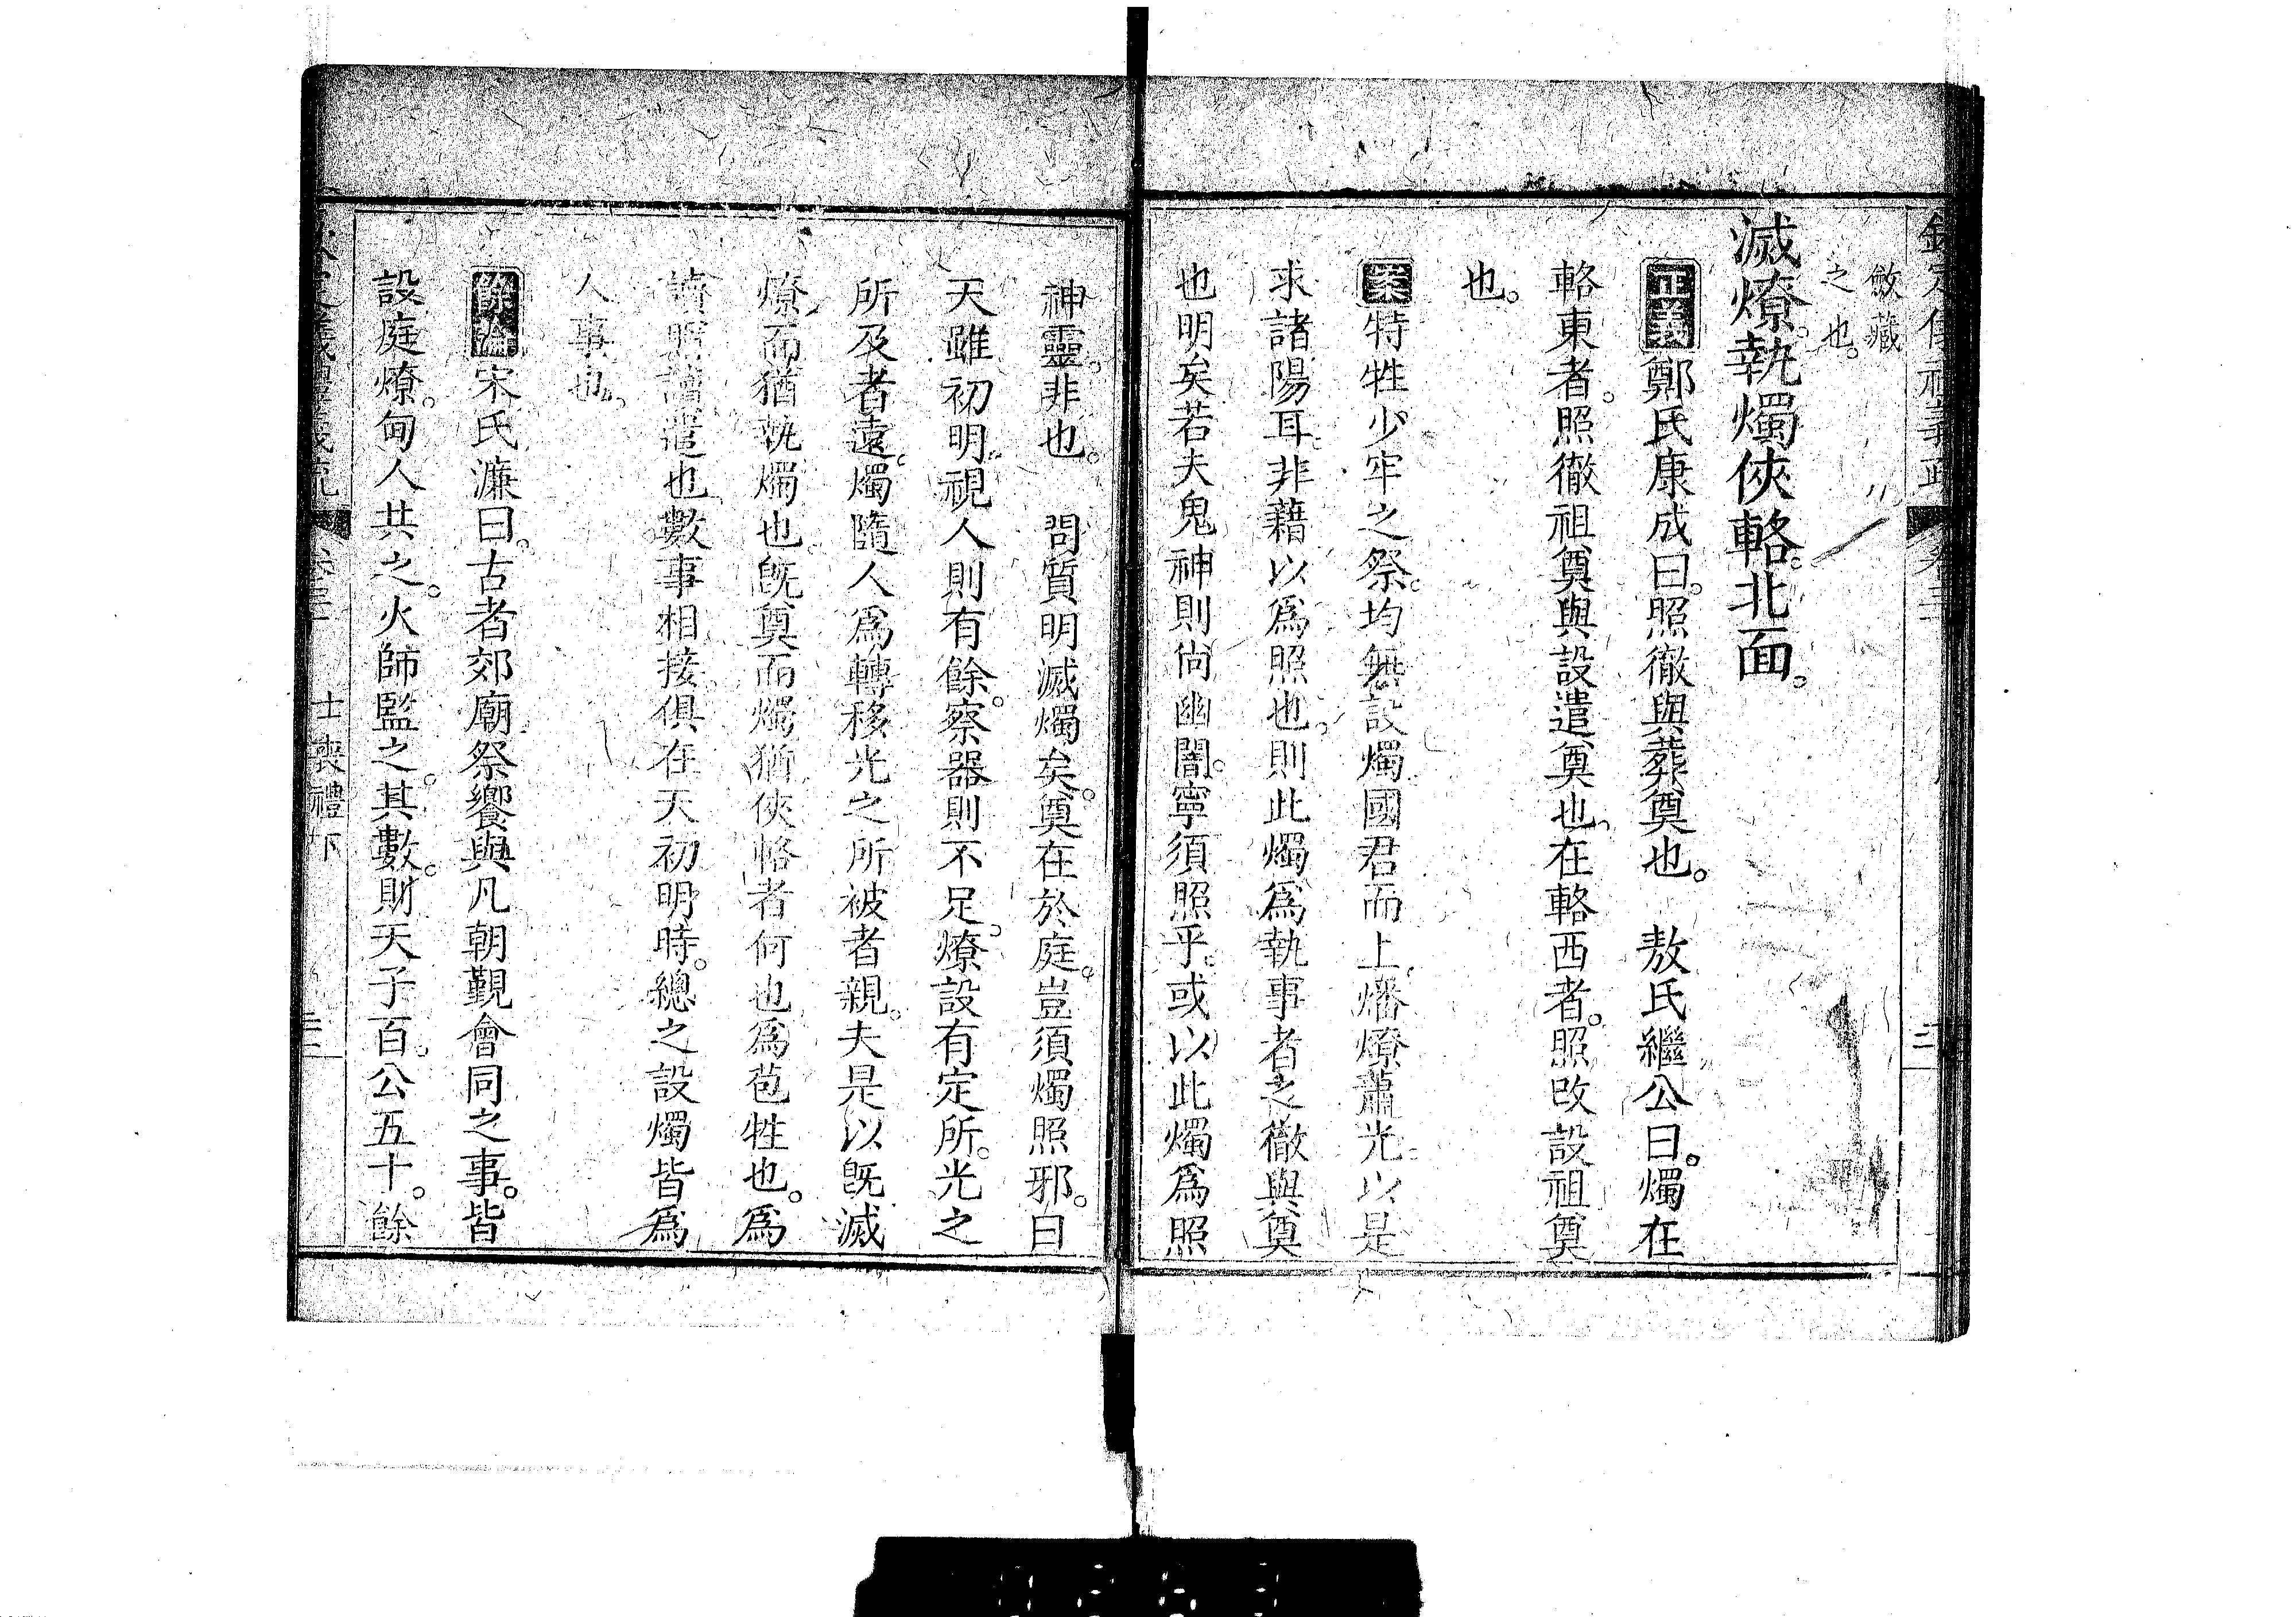 斂藏
之也。
滅燎。執燭俠輅。北面。
正義鄭氏康成曰。照徹與葬奠也。　敖氏繼公曰。燭在
輅東者。照徹祖奠與設遣奠也。在輅西者。照改設祖奠
也。
案特牲少牢之祭。均無設燭國君而上燔燎蕭光。以是
求諸陽耳。非藉以爲照也。則此燭爲執事者之徹與奠
也明矣若夫鬼神則尚幽闇。寧須照乎。或以此燭爲照
神靈。非也。　問質明滅燭矣。奠在於庭。豈須燭照邪。曰
天雖初明。視人則有餘。察器則不足。燎設有定所。光之
所及者遠。燭隨人爲轉移光之所被者親。夫是以旣滅
燎。而猶執燭也。旣奠而燭猶俠輅者何也爲苞牲也。爲
讀賵讀遣也。數事相接。俱在天初明時。總之設燭皆爲
人事也。
餘論宋氏濂曰。古者郊廟祭饗與凡朝覲會同之事。皆
設庭燎。甸人共之。火師監之。其數。則天子百。公五十。餘
士喪禮下